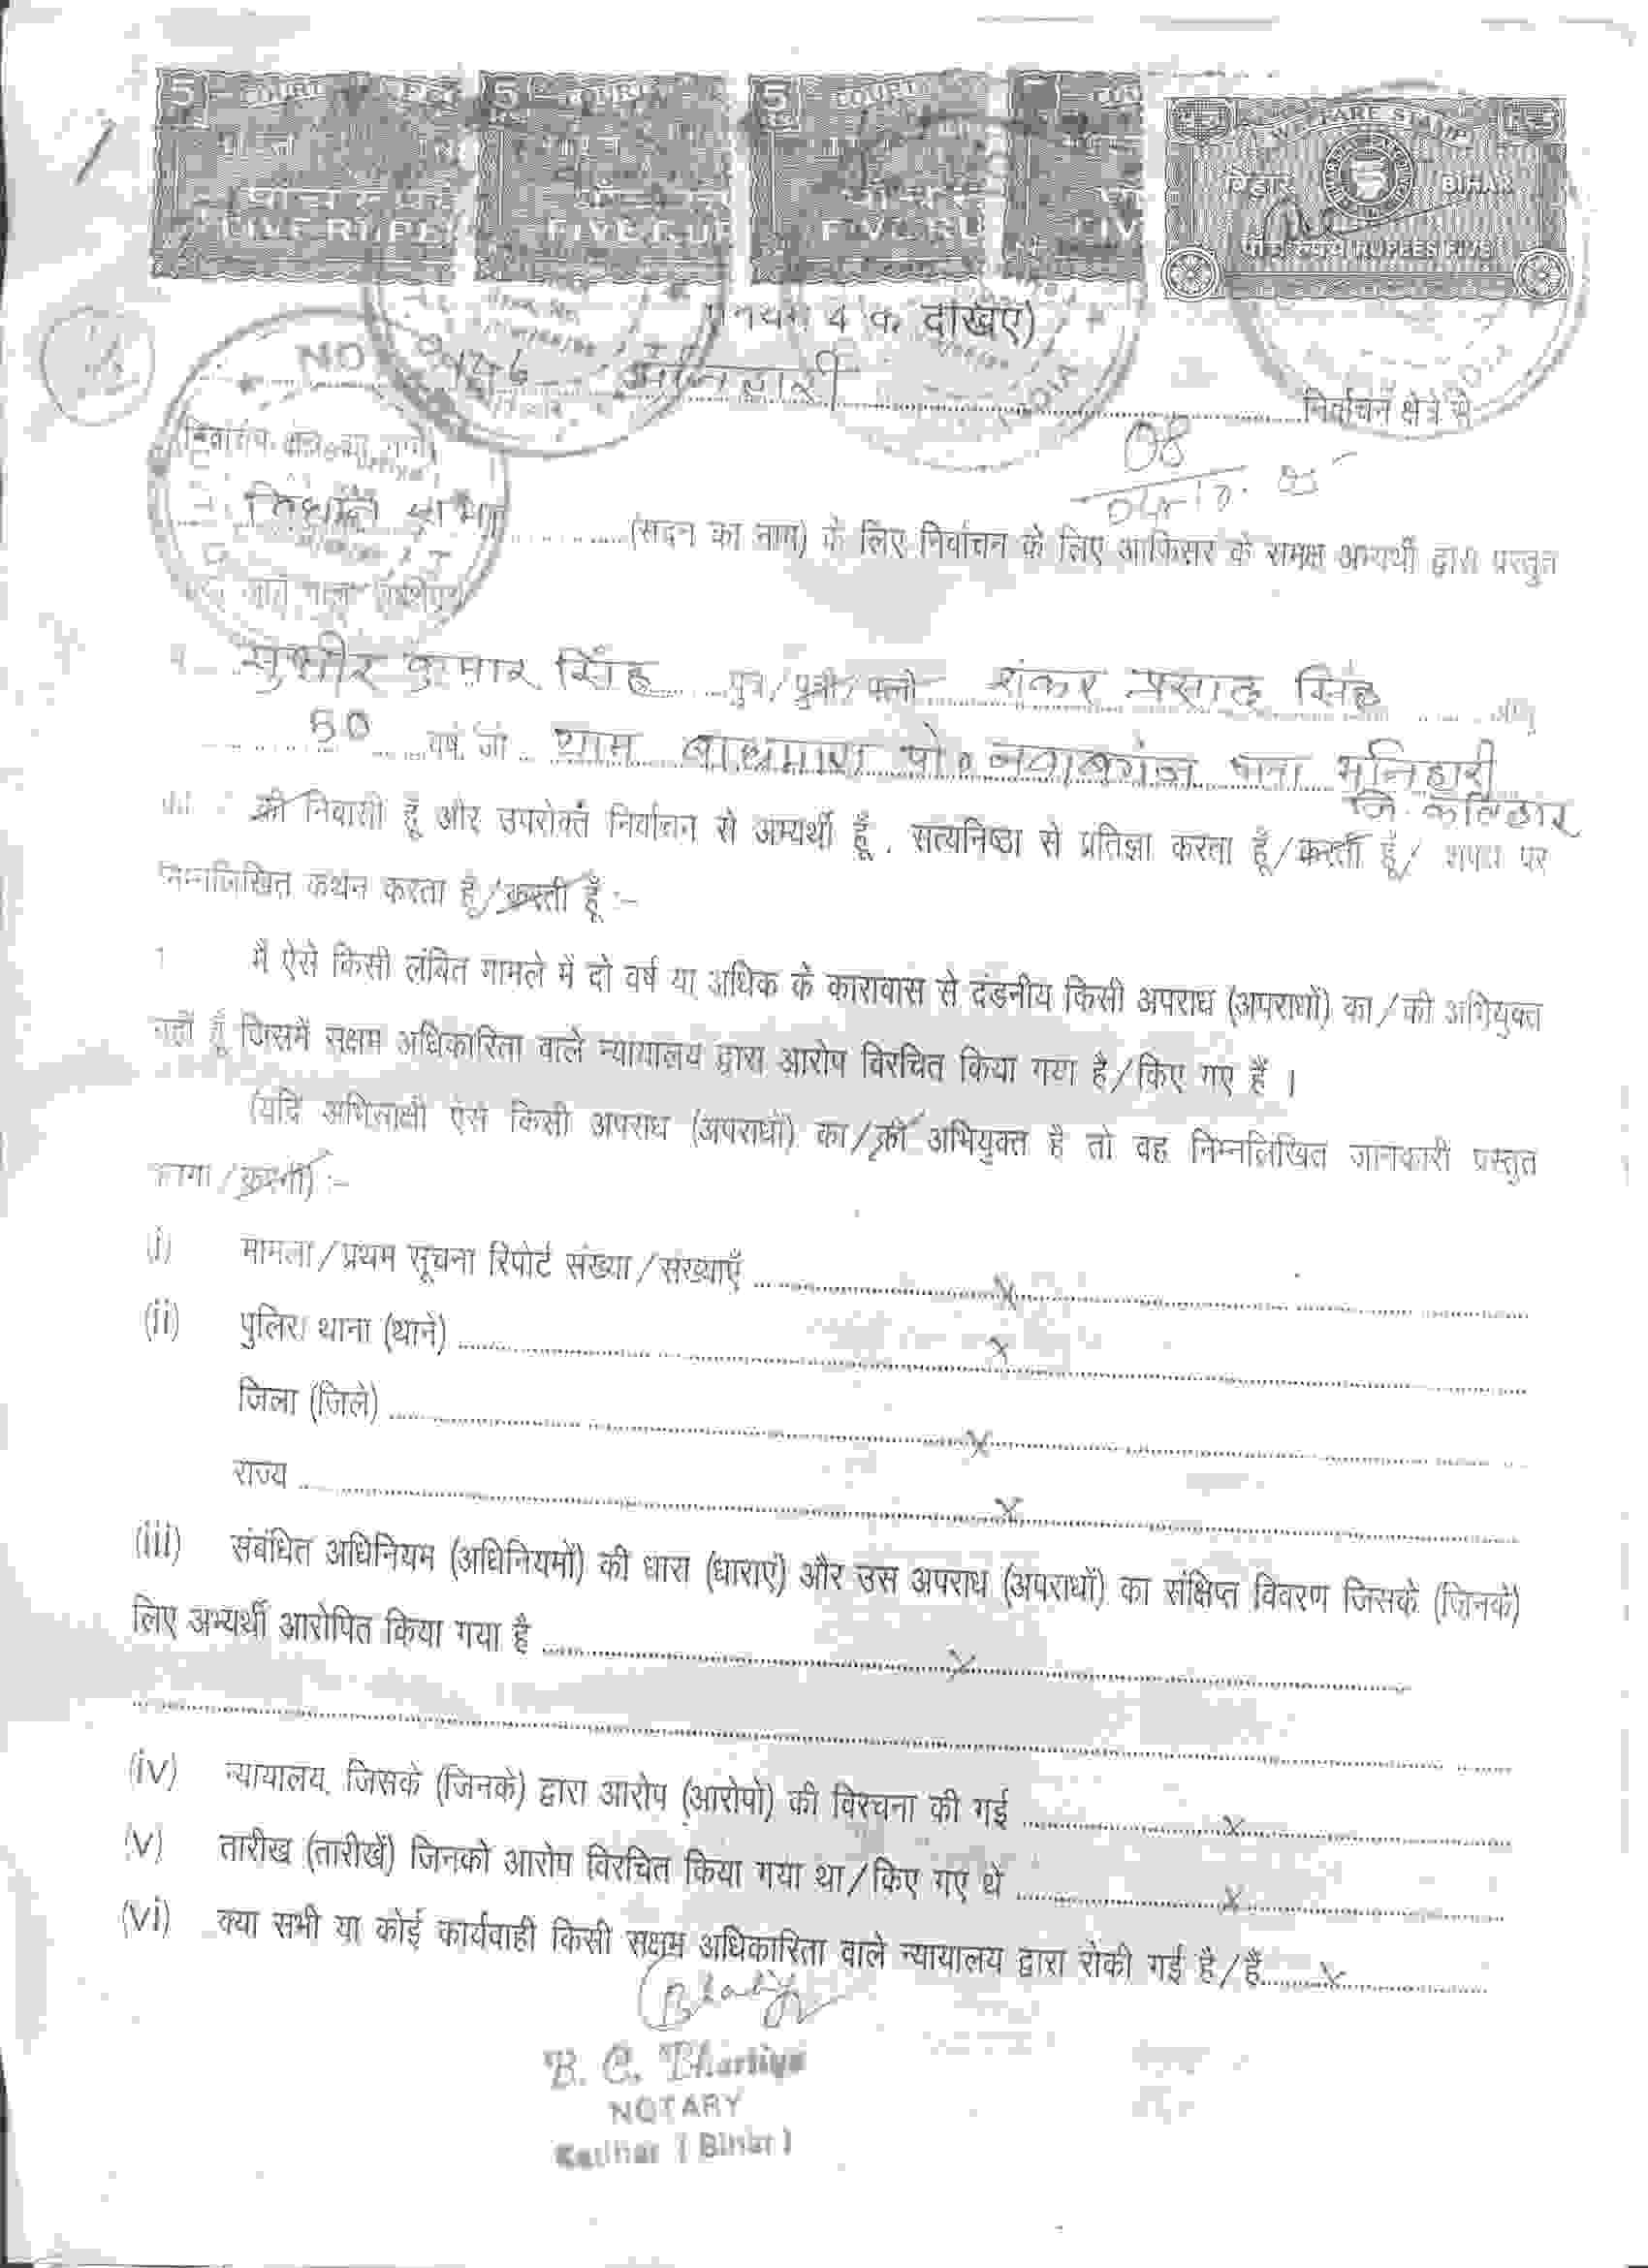 5 COURT FEE
5 COURT
5 COURT
WELFARE STAMP
बिहार BIHAR
FIVE RUPE
FIVE RUP
FIVE RU
FIV
पाँच रुपये RUPEES FIVE
4 क देखिए)
146 मनिहारी निर्वाचन क्षेत्र से
08
विधान सभा (सदन का नाम) के लिए निर्वाचन के लिए आफिसर के समक्ष अभ्यर्थी द्वारा प्रस्तुत
सुधीर कुमार सिंह पुत्र/पुत्री/पत्नी शंकर प्रसाद सिंह आयु
50 वर्ष, जो ग्राम बाघमारा पो० नवाबगंज थाना मनिहारी
जि. कटिहार
की निवासी हूँ और उपरोक्त निर्वाचन से अभ्यर्थी हूँ, सत्यनिष्ठा से प्रतिज्ञा करता हूँ/करती हूँ/ शपथ पर
निम्नलिखित कथन करता हूँ/करती हूँ :-
1 मैं ऐसे किसी लंबित मामले में दो वर्ष या अधिक के कारावास से दंडनीय किसी अपराध (अपराधों) का/की अभियुक्त
नहीं हूँ जिसमें सक्षम अधिकारिता वाले न्यायालय द्वारा आरोप विरचित किया गया है/किए गए हैं ।
(यदि अभिसाक्षी ऐसे किसी अपराध (अपराधों) का/की अभियुक्त है तो वह निम्नलिखित जानकारी प्रस्तुत
करेगा/करेगी) :-
(i) मामला/प्रथम सूचना रिपोर्ट संख्या/संख्याएँ x
(ii) पुलिस थाना (थाने) x
जिला (जिले) x
राज्य x
(iii) संबंधित अधिनियम (अधिनियमों) की धारा (धाराएं) और उस अपराध (अपराधों) का संक्षिप्त विवरण जिसके (जिनके)
लिए अभ्यर्थी आरोपित किया गया है x
(iv) न्यायालय, जिसके (जिनके) द्वारा आरोप (आरोपो) की विरचना की गई x
(v) तारीख (तारीखें) जिनको आरोप विरचित किया गया था/किए गए थे x
(vi) क्या सभी या कोई कार्यवाही किसी सक्षम अधिकारिता वाले न्यायालय द्वारा रोकी गई है/हैं x
B. C. Bhartiya
NOTARY
Katihar (Bihar)